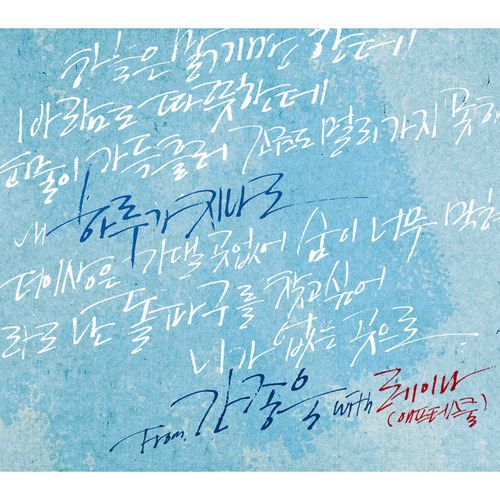 하늘은 맑기만 한데
바람도 따뜻한데
눈물이 가득흘러 조금도 멀리 가지 못하
내 하루가 지나도
더이상은 기댈 곳없어 숨이 너무 막혀
라도 난 돌파구를 찾고싶어
니가 없는 곳으로
From. 간종욱 with 레이나
(애프터스쿨)